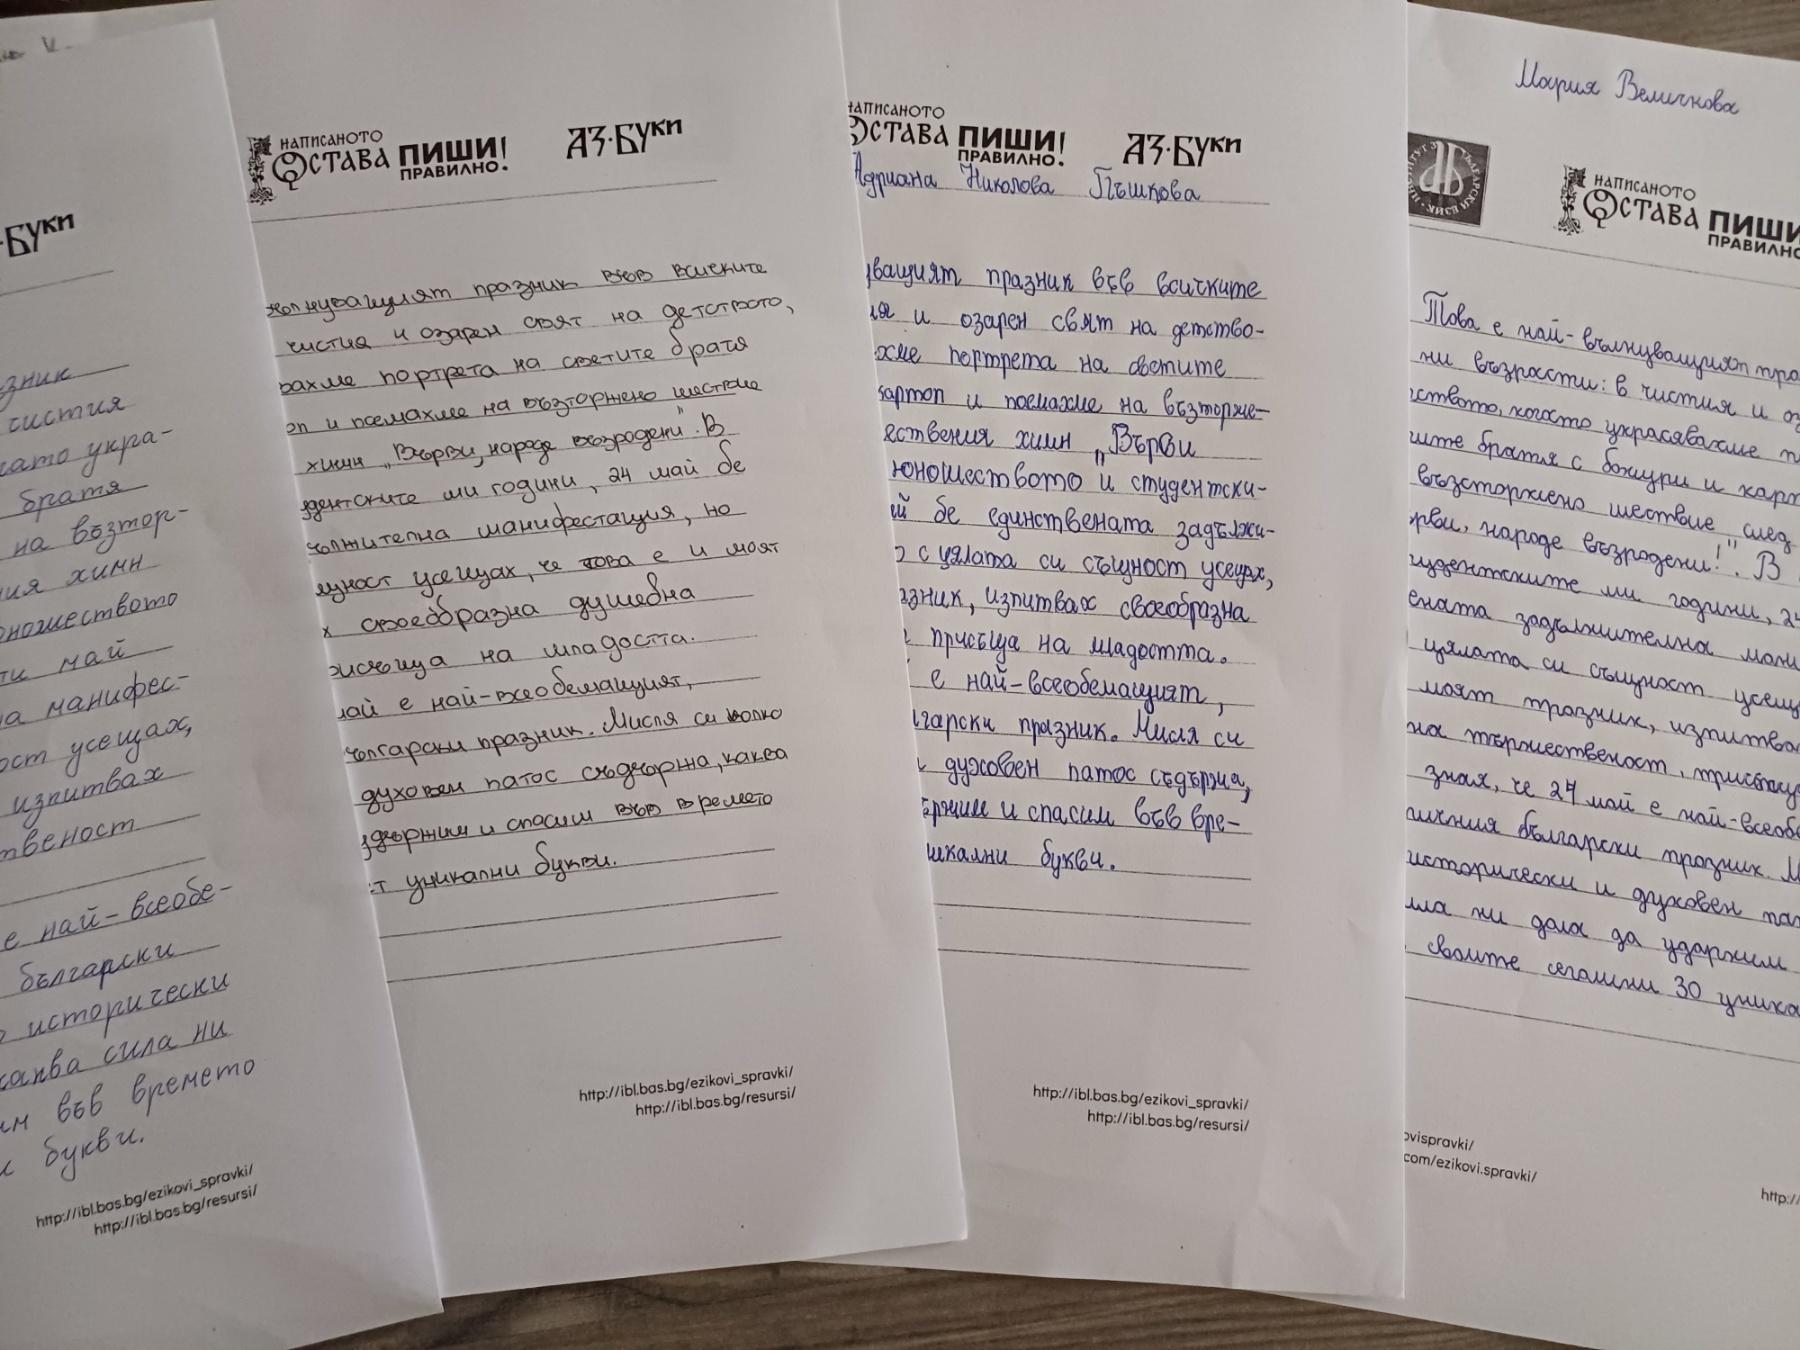 БУКИ
зник
чистия
като укра-
братя
на възтор-
ния химн
юношеството
май
на манифес-
ост усещах,
изпитвах
твеност
е най-всеобе-
български
исторически
каква сила ни
във времето
букви.
http://ibl.bas.bg/ezikovi_spravki/
http://ibl.bas.bg/resursi/
НАПИСАНОТО
ОСТАВА ПИШИ!
ПРАВИЛНО!
АЗ·БУКИ
ълнуващият празник във всичките
чистия и озарен свят на детството,
вахме портрета на светите братя
оп и поемахме на възторжено шествие
химн „Върви, народе възродени". В
удентските ми години, 24 май бе
дължителна манифестация, но
щност усещах, че това е и моят
х своеобразна душевна
рисъща на младостта.
май е най-всеобемащият,
български празник. Мисля си колко
духовен патос съдържа, каква
удържим и спасим във времето
ет уникални букви.
http://ibl.bas.bg/ezikovi_spravki/
http://ibl.bas.bg/resursi/
НАПИСАНОТО
ОСТАВА ПИШИ!
ПРАВИЛНО!
АЗ·БУКИ
Адриана Николова Пъшкова
уващият празник във всичките
ия и озарен свят на детство-
ахме портрета на светите
картоп и поемахме на възторже-
ествения химн „Върви
юношеството и студентски-
ай бе единствената задължи-
о с цялата си същност усещах,
азник, изпитвах своеобразна
присъща на младостта.
е най-всеобемащият,
лгарски празник. Мисля си
духовен патос съдържа,
ържим и спасим във вре-
уникални букви.
http://ibl.bas.bg/ezikovi_spravki/
http://ibl.bas.bg/resursi/
Мария Величкова
ИНСТИТУТ ЗА БЪЛГАРСКИ ЕЗИК
НАПИСАНОТО
ОСТАВА ПИШИ
ПРАВИЛНО
Това е най-вълнуващият пра
ни възрасти: в чистия и оз
тството, когато украсявахме п
ите братя с божури и карт
възсторжено шествие след
ърви, народе възродени!". В
удентските ми години, 24
ената задължителна мани
цялата си същност усещ
моят празник, изпитва
на тържественост, присъщ
зная, че 24 май е най-всеоб
ичния български празник. М
исторически и духовен па
ила ни дала да удържим
своите сегашни 30 уника
ovispravki/
com/ezikovi.spravki/
http://